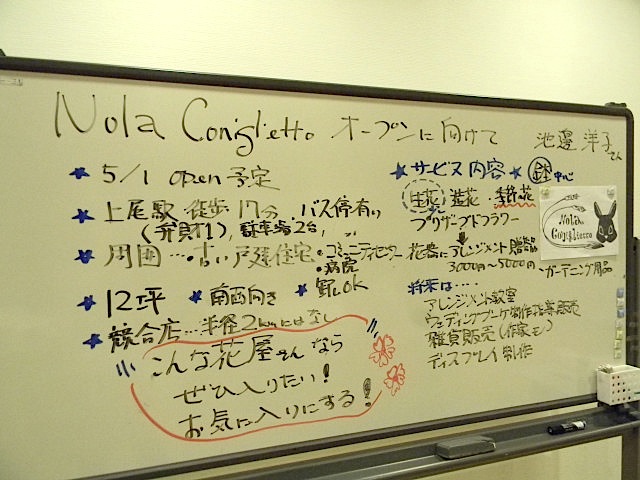 Nola Coniglietto オープンに向けて 池邊洋子さん
★ 5/1 open 予定
★ 上尾駅 徒歩17分、バス停有り
(弁財1)、駐車場2台、〃
★ 周囲…古い戸建住宅・コミュニティセンター
・病院
★ 12坪 ★ 南西向き ★ 飼しOK
★ 競合店…半径2kmにはなし
こんな花屋さんなら
ぜひ入りたい!
お気に入りにする!
★ サービス内容 ★ 鉢中心
生花 造花・季節の花
プリザーブドフラワー
花器にアレンジメント 贈答品
3000円〜5000円
・ガーデニング用品
将来は…
アレンジメント教室
ウェディングブーケ制作指導販売
雑貨販売(作家モノ)
ディスプレイ制作
Nola
Coniglietto